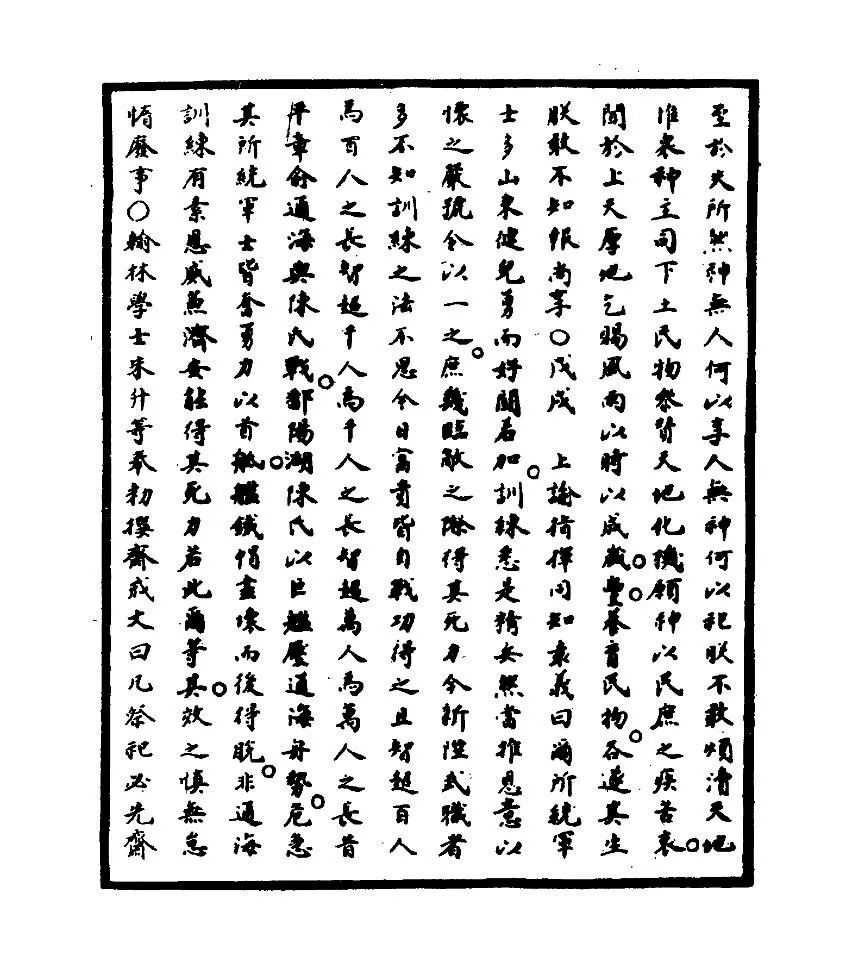 至於失所然神無人何以享人無神何以祀朕不敢煩瀆天地
惟衆神主司下土民物叅贊天地化機願神以民庶之疾苦哀
聞於上天厚地乞賜風雨以時以成歲豐養育民物各遂其生
朕敢不知報尚享○戊戌　上諭指揮同知袁義曰爾所統軍
士多山東健兒勇而好鬭若加訓練悉是精安然當推恩意以
懷之嚴號令以一之庶幾臨敵之際得其死力今新陞武職者
多不知訓練之法不思今日富貴皆自戰功得之且智超百人
為百人之長智超千人為千人之長智超萬人為萬人之長昔
平章俞通海與陳氏戰鄱陽湖陳氏以巨艦壓通海舟勢危急
其所統軍士皆奮勇力以首舐艦鐵帽盡壞而後得脫非通海
訓練有素恩威兼濟安能得其死力若此爾等其效之慎無怠
惰廢事○翰林學士朱升等奉勑撰齋戒文曰凡祭祀必先齋